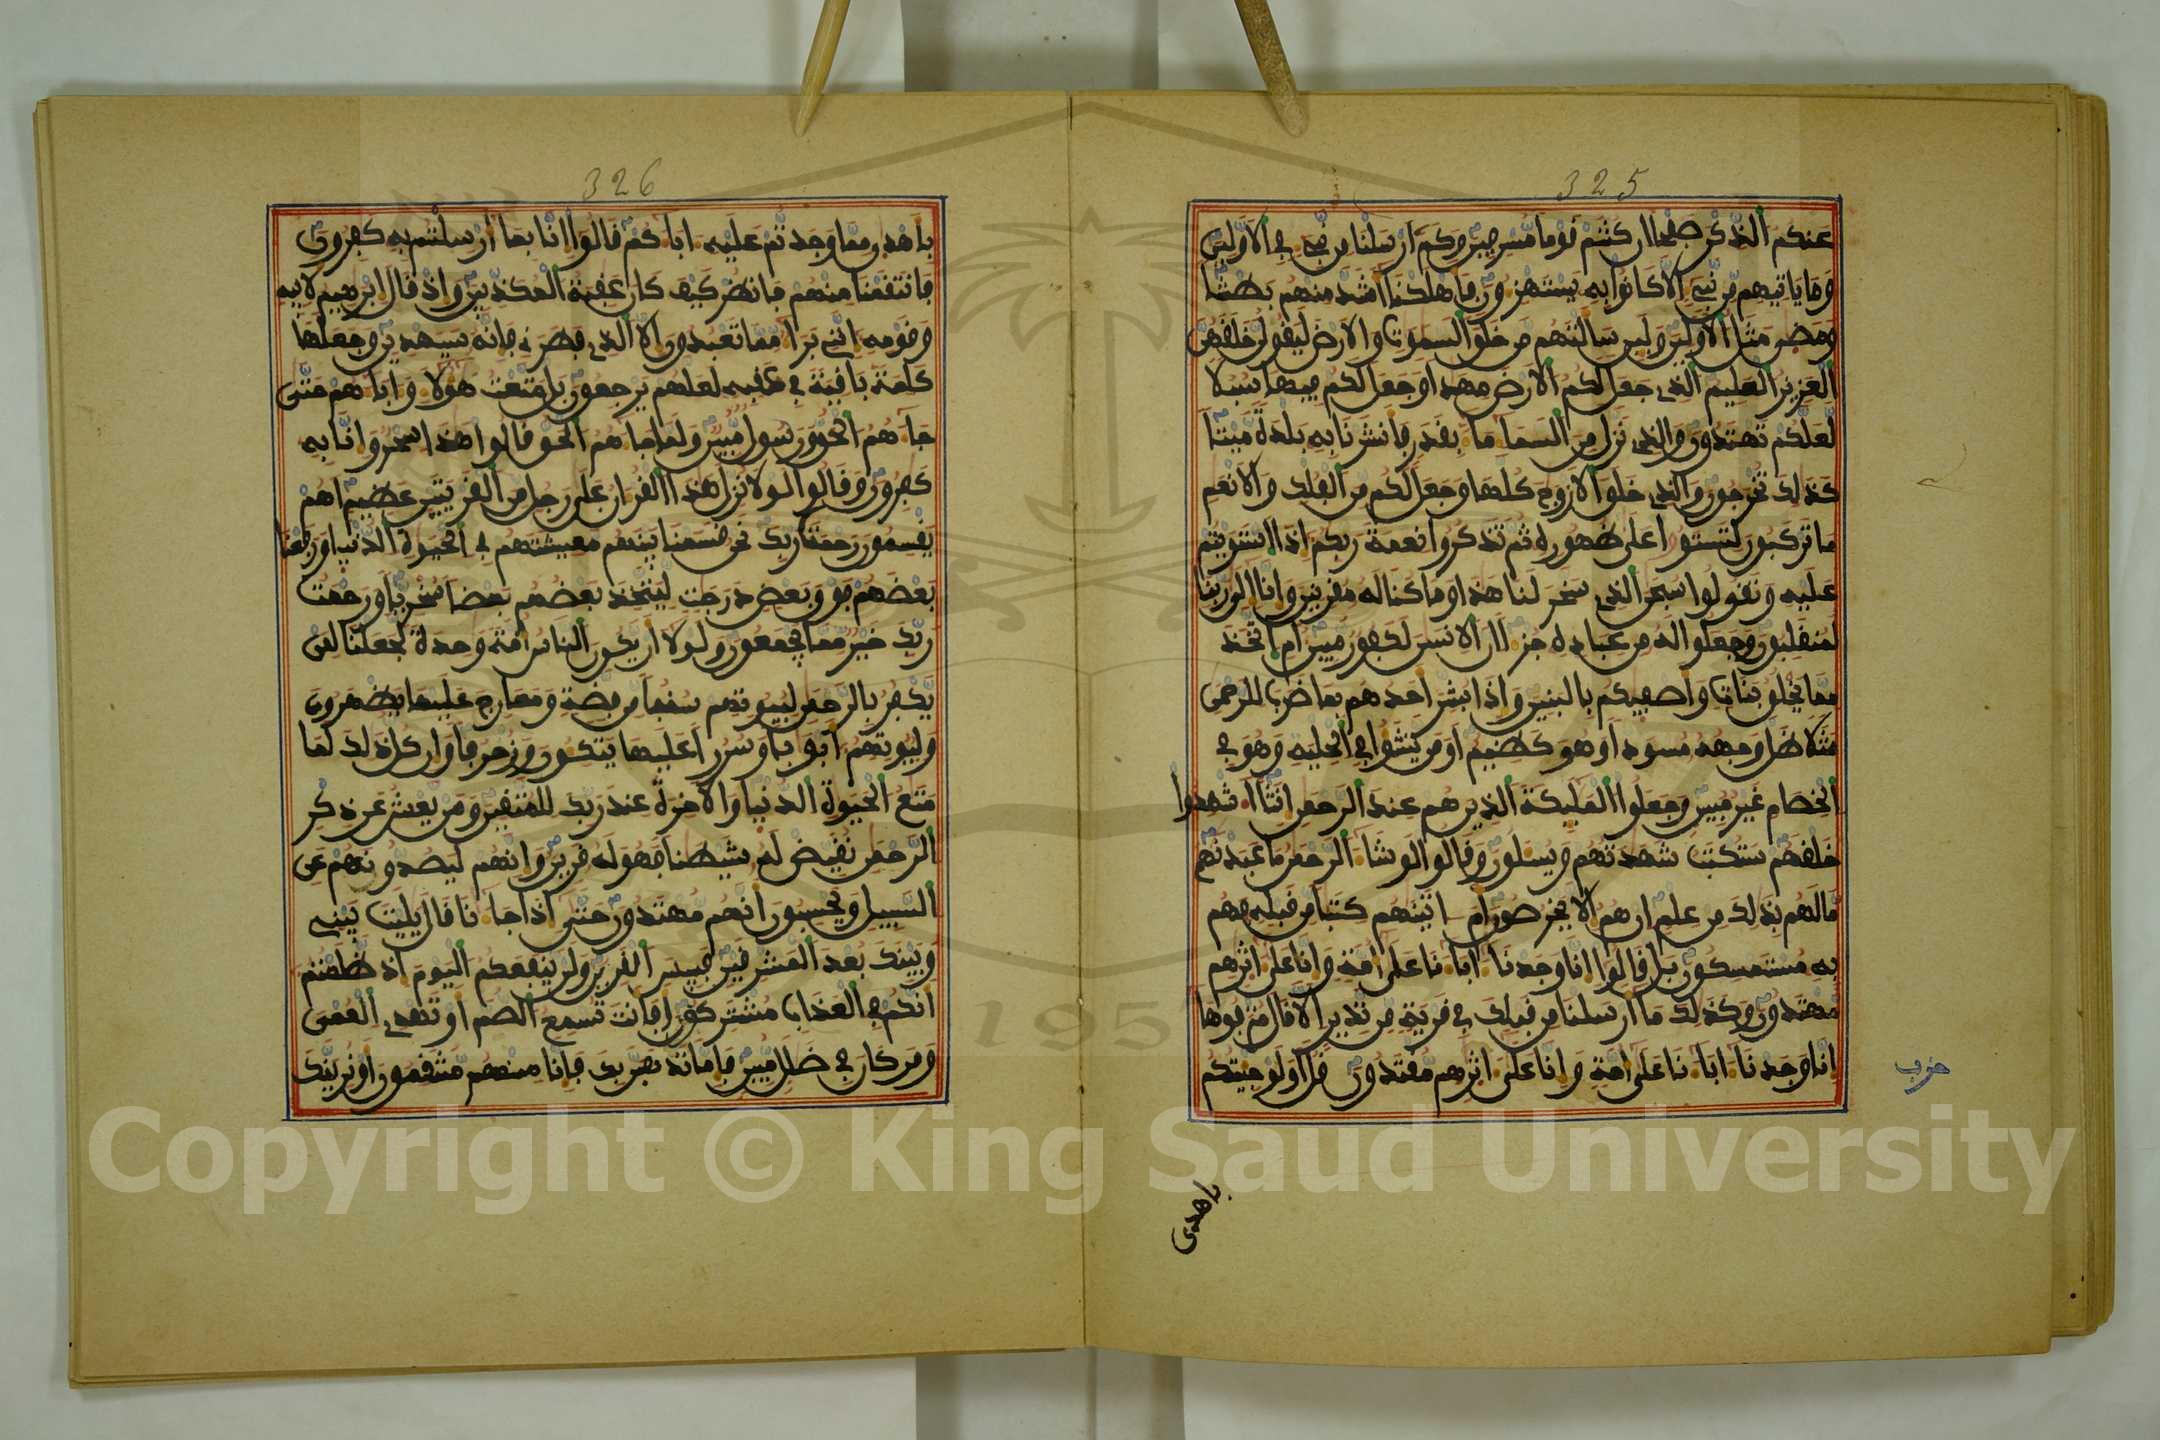 325
عنكم الذكر صفحا ان كنتم قوما مسرفين وكم ارسلنا من نبيء في الاولين
وما ياتيهم من نبيء الا كانوا به يستهزءون فاهلكنا اشد منهم بطشا
ومضى مثل الاولين ولين سالتهم من خلق السموت والارض ليقولن خلقهن
العزيز العليم الذي جعل لكم الارض مهدا وجعل لكم فيها سبلا
لعلكم تهتدون والذي نزل من السماء ماء بقدر فانشرنا به بلدة ميتا
كذلك تخرجون والذي خلق الازوج كلها وجعل لكم من الفلك والانعم
ما تركبون لتستوا على ظهوره ثم تذكروا نعمة ربكم اذا استويتم
عليه وتقولوا سبحن الذي سخر لنا هذا وما كنا له مقرنين وانا الى ربنا
لمنقلبون وجعلوا له من عباده جزءا ان الانسن لكفور مبين ام اتخذ
مما يخلق بنات واصفيكم بالبنين واذا بشر احدهم بما ضرب للرحمن
مثلا ظل وجهه مسودا وهو كظيم او من ينشؤا في الحلية وهو في
الخصام غير مبين وجعلوا المليكة الذين هم عند الرحمن انثا اشهدوا
خلقهم ستكتب شهدتهم ويسلون وقالوا لو شاء الرحمن ما عبدنهم
ما لهم بذلك من علم ان هم الا يخرصون ام اتينهم كتبا من قبله فهم
به مستمسكون بل قالوا انا وجدنا اباءنا على امة وانا على اثرهم
مهتدون وكذلك ما ارسلنا من قبلك في قرية من نذير الا قال مترفوها
انا وجدنا اباءنا على امة وانا على اثرهم مقتدون قل اولو جيتكم
حزب
باهدى
326
باهدى مما وجدتم عليه اباءكم قالوا انا بما ارسلتم به كفرون
فانتقمنا منهم فانظر كيف كان عقبة المكذبين واذ قال ابرهيم لابيه
وقومه انني براء مما تعبدون الا الذي فطرني فانه سيهدين وجعلها
كلمة باقية في عقبه لعلهم يرجعون بل متعت هؤلاء واباءهم حتى
جاءهم الحق ورسول مبين ولما جاءهم الحق قالوا هذا سحر وانا به
كفرون وقالوا لولا نزل هذا القران على رجل من القريتين عظيم اهم
يقسمون رحمت ربك نحن قسمنا بينهم معيشتهم في الحيوة الدنيا ورفعنا
بعضهم فوق بعض درجت ليتخذ بعضهم بعضا سخريا ورحمت
ربك خير مما يجمعون ولولا ان يكون الناس امة وحدة لجعلنا لمن
يكفر بالرحمن لبيوتهم سقفا من فضة ومعارج عليها يظهرون
ولبيوتهم ابوبا وسررا عليها يتكون وزخرفا وان كل ذلك لما
متع الحيوة الدنيا والاخرة عند ربك للمتقين ومن يعش عن ذكر
الرحمن نقيض له شيطنا فهو له قرين وانهم ليصدونهم عن
السبيل ويحسبون انهم مهتدون حتى اذا جاءنا قال يليت بيني
وبينك بعد المشرقين فبيس القرين ولن ينفعكم اليوم اذ ظلمتم
انكم في العذاب مشتركون افانت تسمع الصم او تهدي العمي
ومن كان في ضلل مبين فاما نذهبن بك فانا منهم منتقمون او نرينك
Copyright © King Saud University
1957